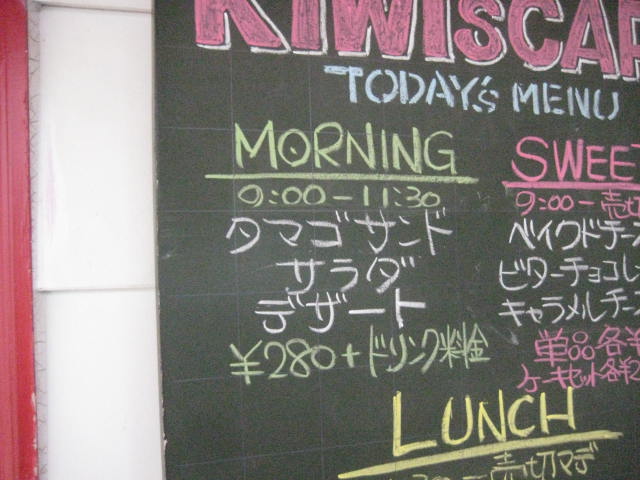 KIWISCAF
TODAY'S MENU
MORNING
9:00-11:30
タマゴサンド
サラダ
デザート
¥280+ドリンク料金
SWEET
9:00-売切
ベイクドチーズ
ビターチョコレ
キャラメルチーズ
単品各¥
ケーキセット各¥2
LUNCH
売切マデ